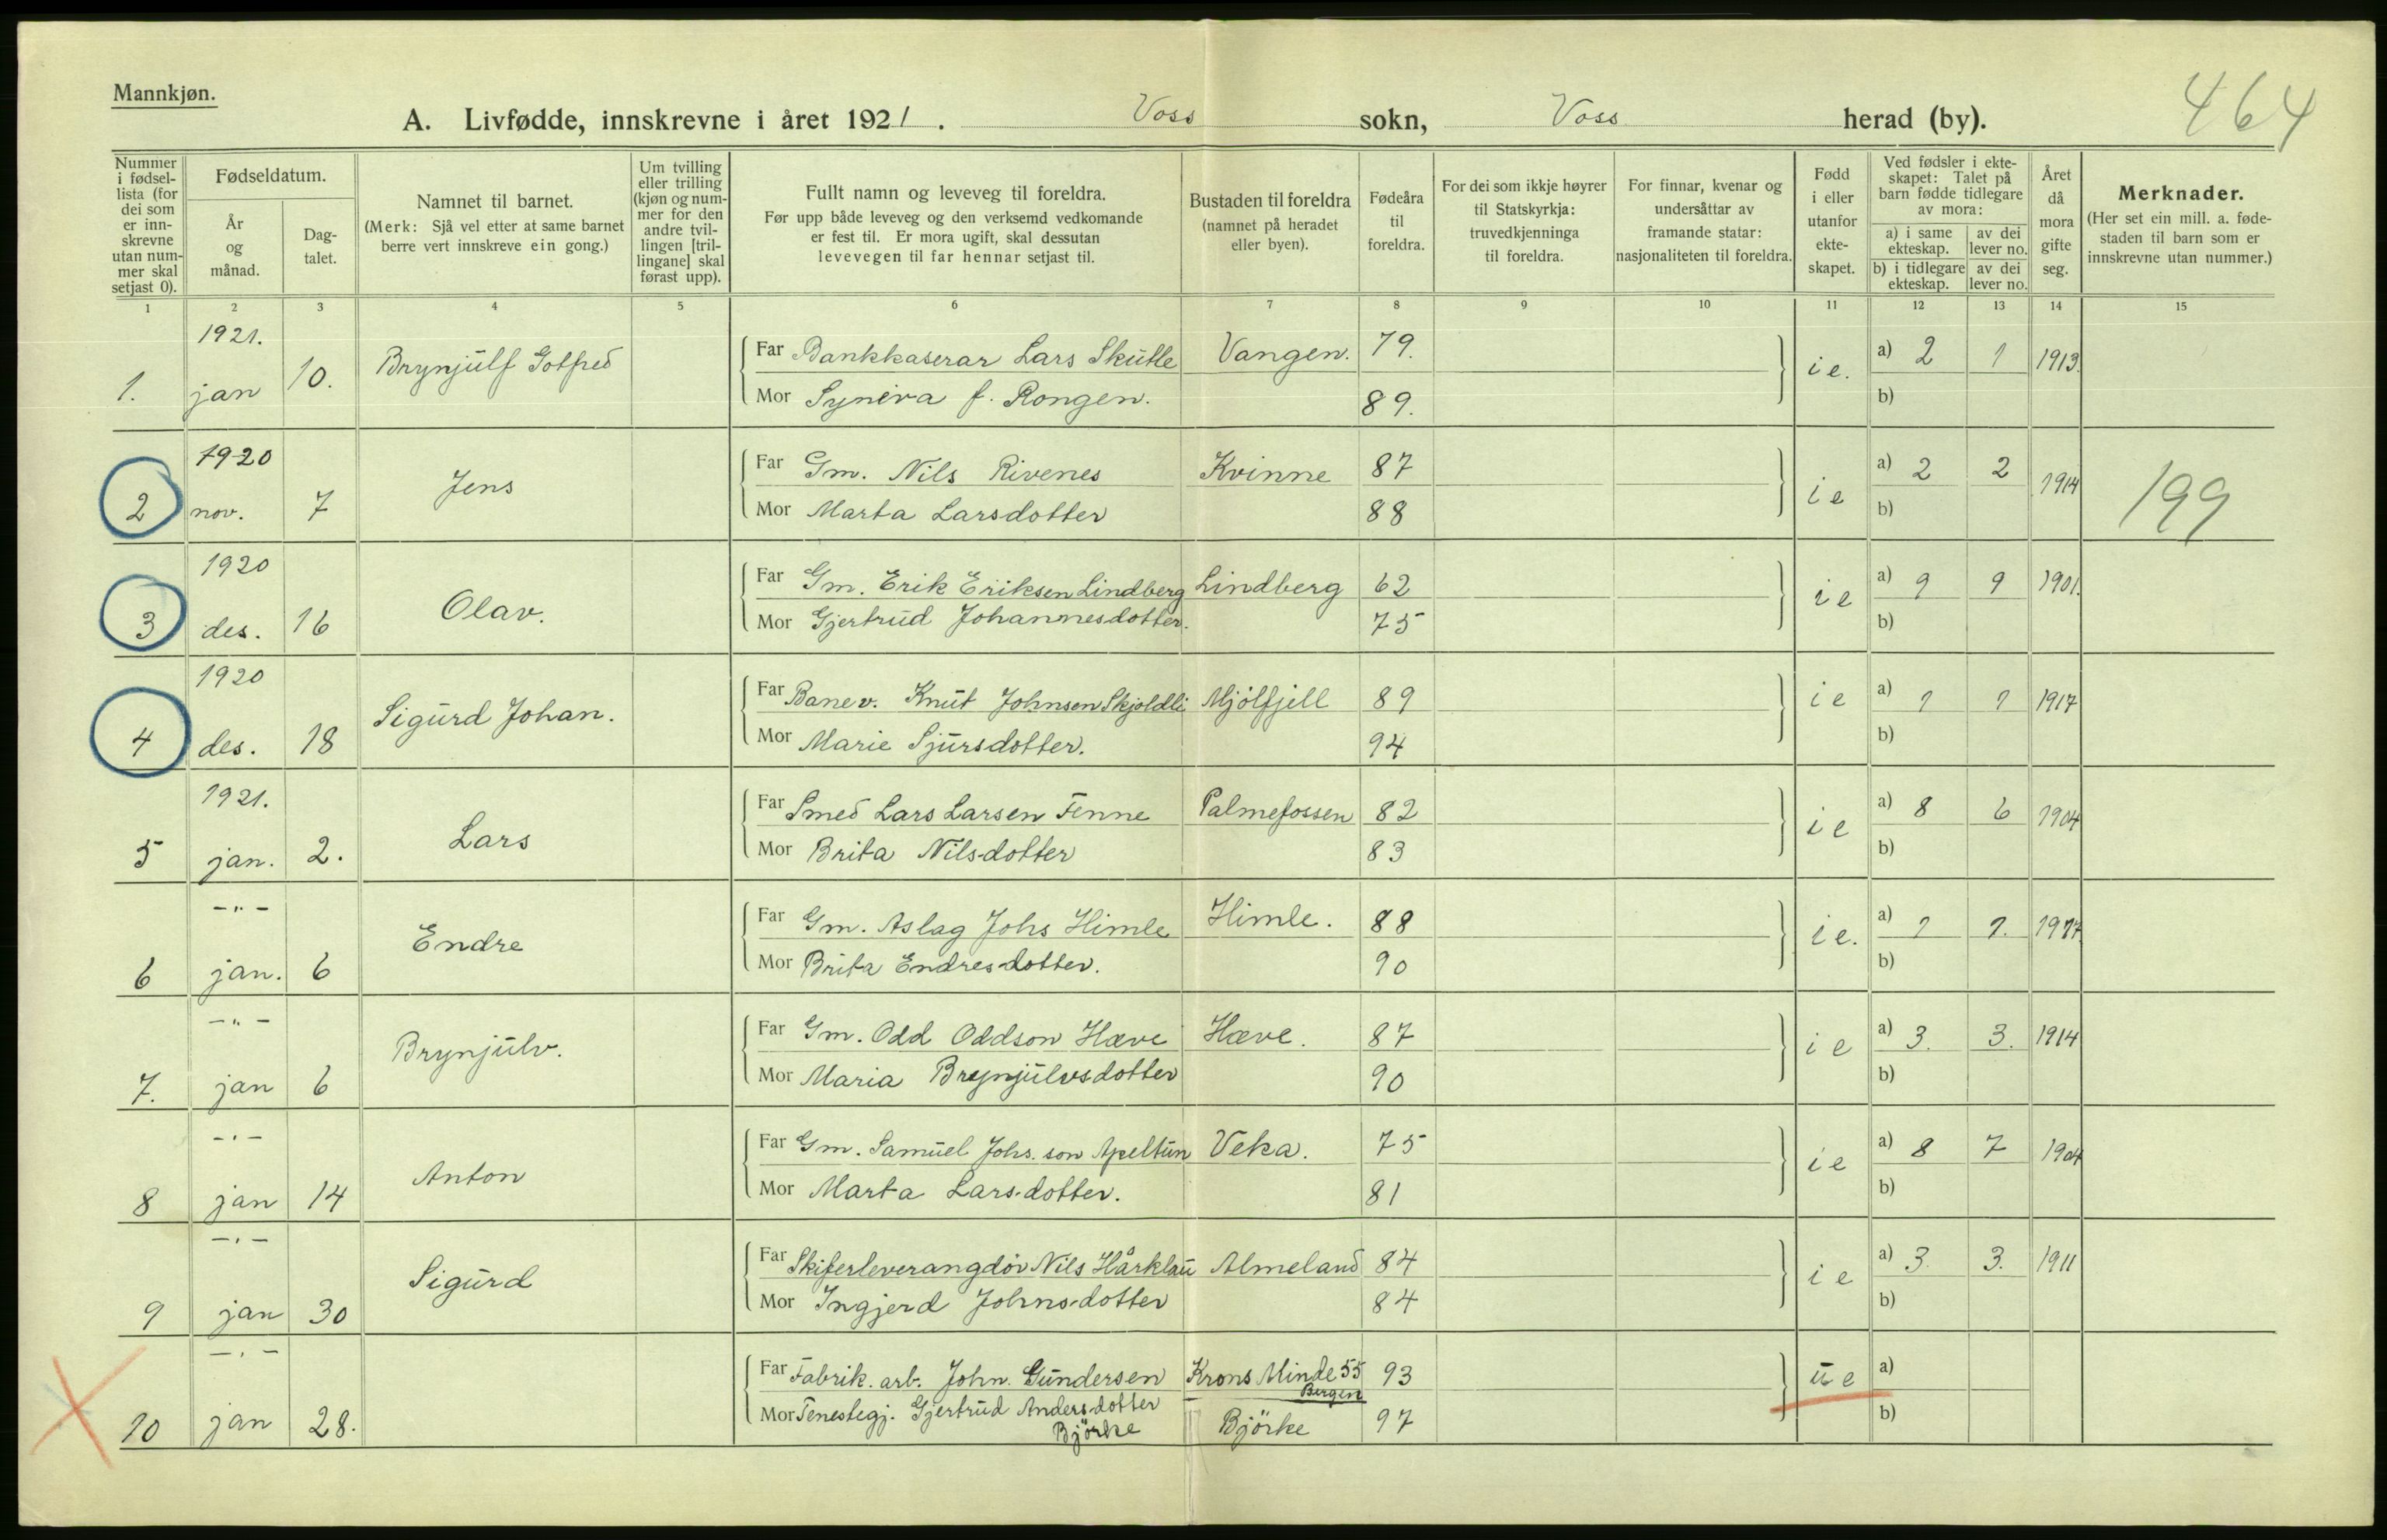 Mannkjøn.
464
A. Livfødde, innskrevne i året 1921. Voss sokn, Voss herad (by).
Nummer i fødsel-lista (for dei som er inn-skrevne utan num-mer skal setjast 0).
Fødseldatum.
År og månad.
Dag-talet.
Namnet til barnet.
(Merk: Sjå vel etter at same barnet berre vert innskreve ein gong.)
Um tvilling eller trilling (kjøn og num-mer for den andre tvil-lingen [tril-lingane] skal førast upp).
Fullt namn og leveveg til foreldra.
Før upp både leveveg og den verksemd vedkomande er fest til. Er mora ugift, skal dessutan levevegen til far hennar setjast til.
Bustaden til foreldra (namnet på heradet eller byen).
Fødeåra til foreldra.
For dei som ikkje høyrer til Statskyrkja: truvedkjenninga til foreldra.
For finnar, kvenar og undersåttar av framande statar: nasjonaliteten til foreldra.
Fødd i eller utanfor ekte-skapet.
Ved fødsler i ekte-skapet: Talet på barn fødde tidlegare av mora:
a) i same ekteskap. av dei lever no.
b) i tidlegare ekteskap. av dei lever no.
Året då mora gifte seg.
Merknader.
(Her set ein mill. a. føde-staden til barn som er innskrevne utan nummer.)
1 2 3 4 5 6 7 8 9 10 11 12 13 14 15
1. 1921. jan 10. Brynjülf Gotfred
Far Bankkaserar Lars Skutle Vangen. 79. i e. a) 2 1 1913.
Mor Syneva f. Rongen. 89. b)
2 1920 nov. 7 Jens
Far Gm. Nils Rivenes Kvinne 87 i e a) 2 2 1914 199
Mor Marta Larsdotter 88 b)
3 1920 des. 16 Olav.
Far Gm. Erik Eriksen Lindberg Lindberg 62 i e a) 9 9 1901.
Mor Gjertrüd Johannesdotter. 75 b)
4 1920 des. 18 Sigürd Johan.
Far Banev. Knüt Johnsen Skjoldli Mjölfjell 89 i e a) 1 1 1917
Mor Marie Sjürsdotter. 94 b)
5 1921. jan. 2. Lars
Far Smed Lars Larsen Fenne Palmefossen 82 i e a) 8 6 1904
Mor Brita Nilsdotter 83 b)
6 -"- jan. 6 Endre
Far Gm. Aslag Johs Himle Himle. 88 i e. a) 1 1. 1917
Mor Brita Endresdotter. 90 b)
7. -"- jan 6 Brynjülv.
Far Gm. Odd Oddson Hæve Hæve. 87 i e a) 3. 3. 1914
Mor Maria Brynjülvsdotter 90 b)
8 -"- jan 14 Anton
Far Gm. Samüel Johs. son Apeltün Veka. 75 i e a) 8 7 1904
Mor Marta Larsdotter. 81 b)
9 -"- jan 30 Sigürd
Far Skiferleverangdör Nils Hårklau Almeland 84 i e a) 3. 3. 1911
Mor Ingjerd Johnsdotter 84 b)
10 -"- jan 28.
Far Fabrik. arb. John. Gündersen Krons Minde 55 Bergen 93 ü e a)
Mor Tenestegj. Gjertrüd Andersdotter Björke Björke 97 b)